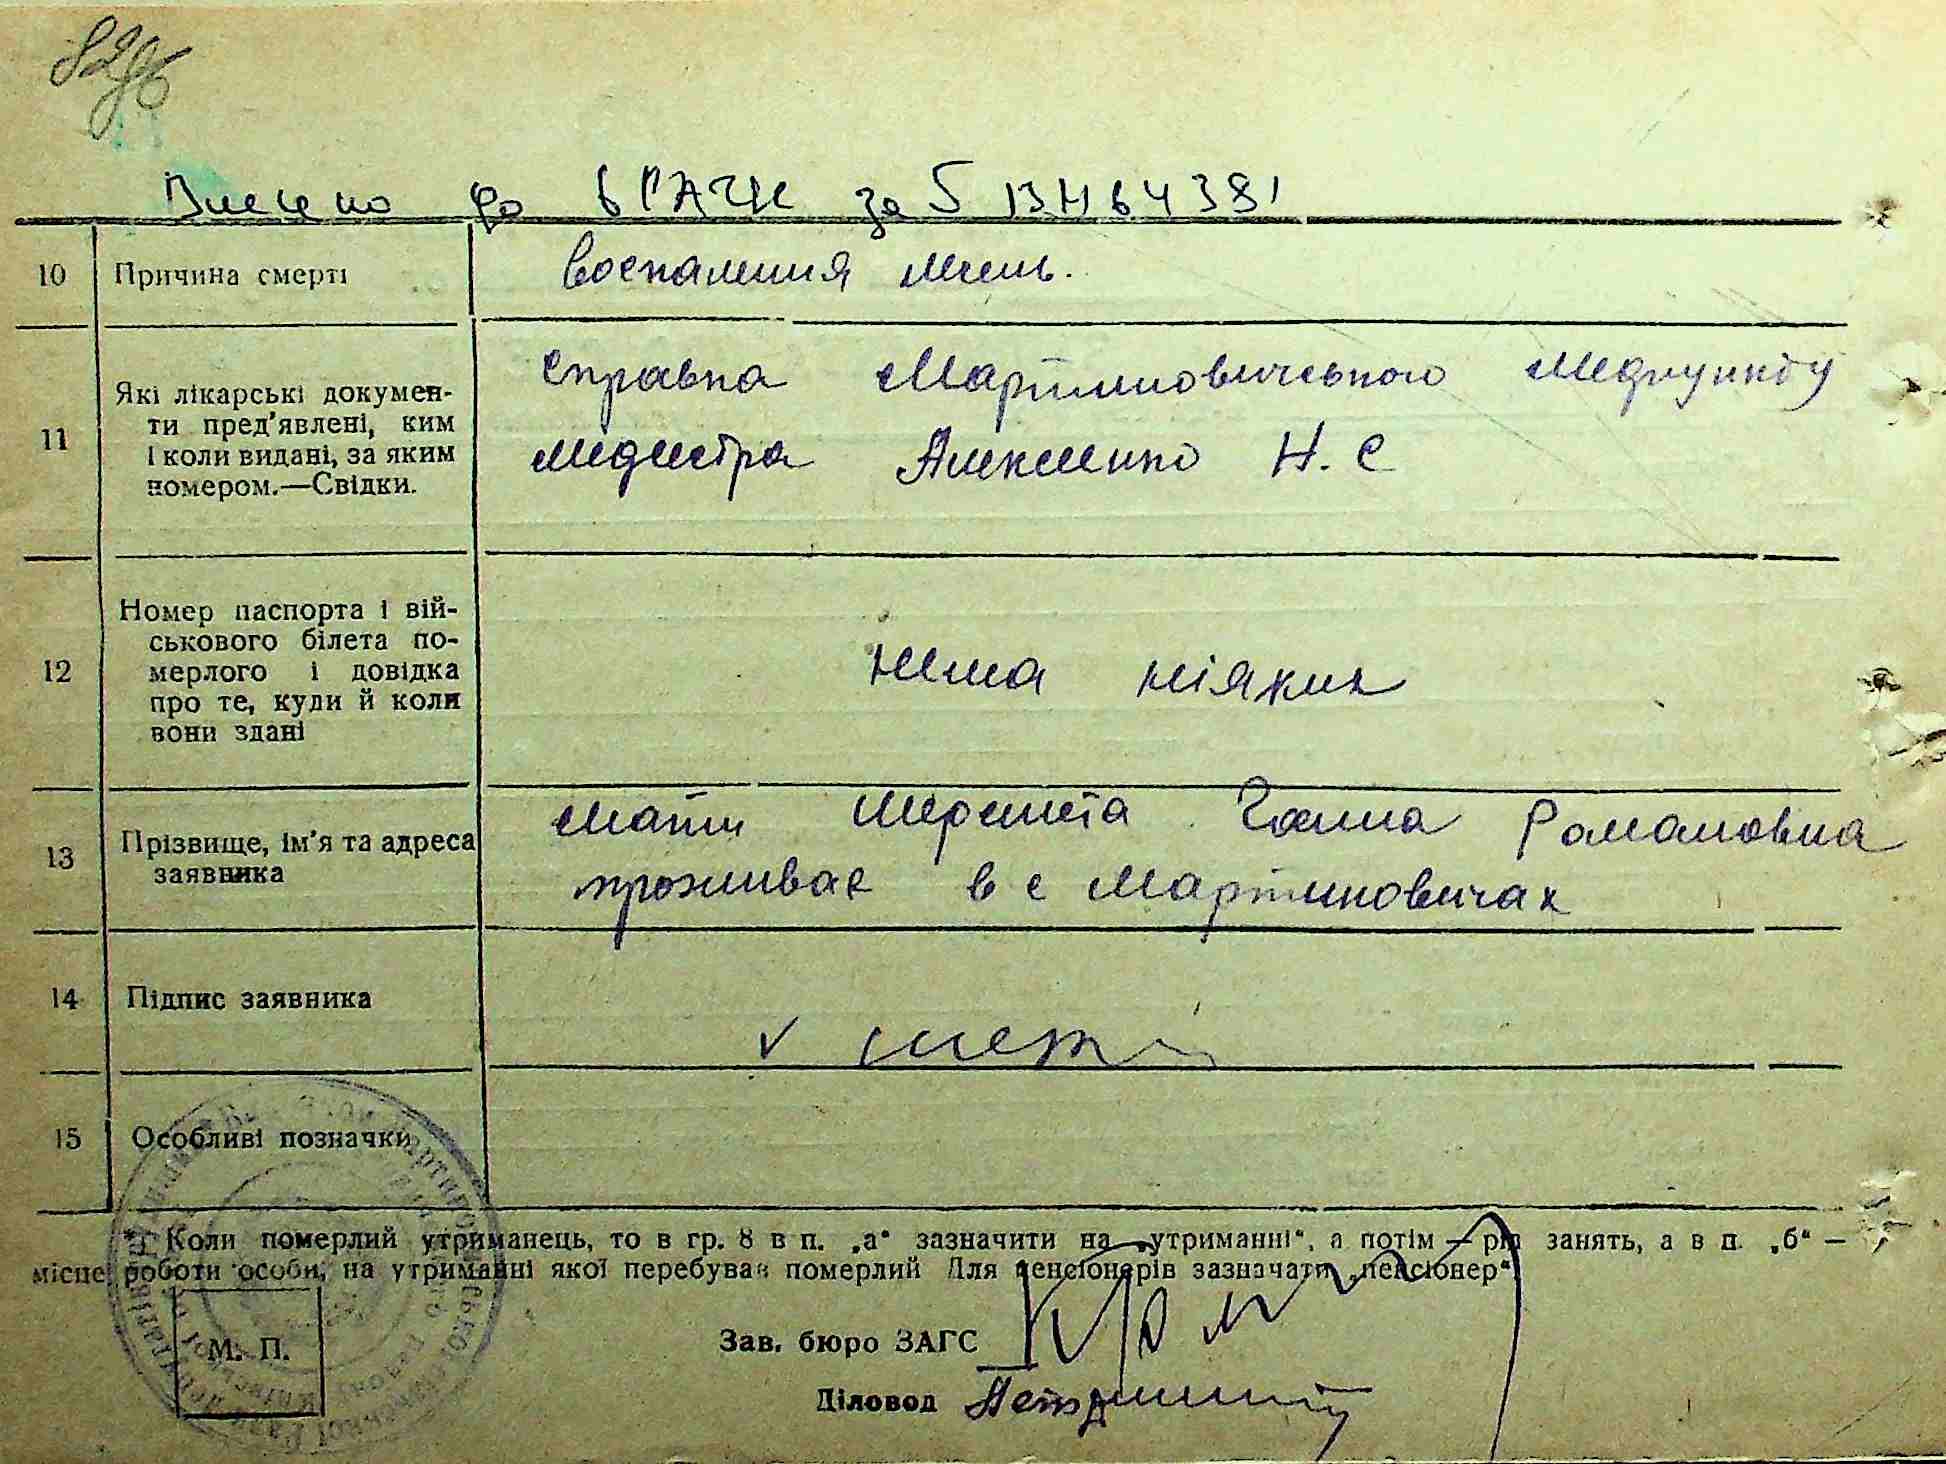 8296
Внесено до ВРАЦК за
10 Причина смерті воспаления
11 Які лікарські докумен-
ти пред’явлені, ким
і коли видані, за яким
номером.—Свідки.
справка Мартиновичського Медпункту
медсестра Алексеенко Н. С
12 Номер паспорта і вій-
ськового білета по-
мерлого і довідка
про те, куди й коли
вони здані
нема ніяких
13 Прізвище, ім’я та адреса
заявника
мати Ганна Романовна
проживає в с Мартиновичах
14 Підпис заявника
15 Особливі позначки
* Коли померлий утриманець, то в гр. 8 в п. „а“ зазначити на „утриманні“, а потім — рід занять, а в п. „б“ —
місце роботи особи, на утриманні якої перебував померлий Для пенсіонерів зазначати „пенсіонер“
М. П.
Зав. бюро ЗАГС
Діловод